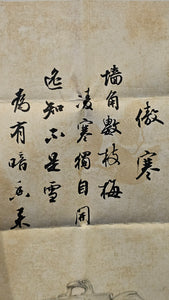 傲寒
墙角数枝梅
凌寒独自开
遥知不是雪
为有暗香来